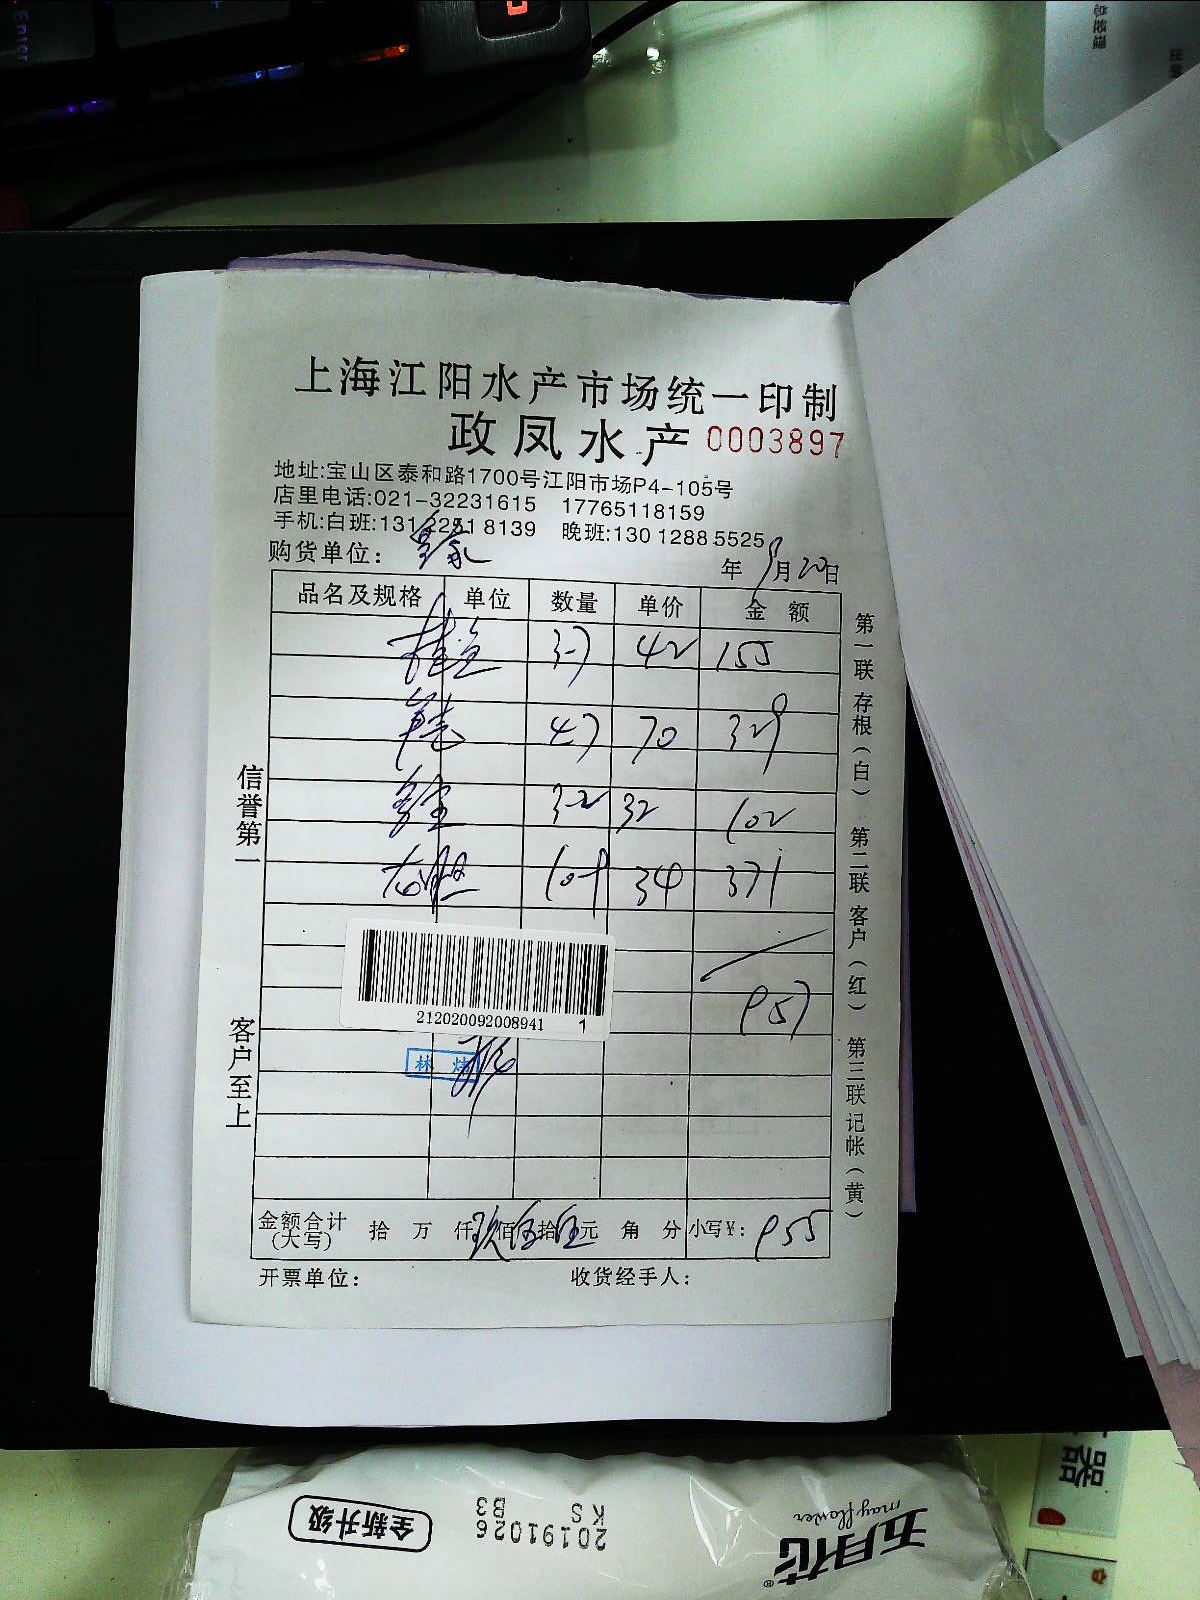 Enter
总经理
上海江阳水产市场统一印制
政凤水产 0003897
地址:宝山区泰和路1700号江阳市场P4-105号
店里电话:021-32231615 17765118159
手机:白班:131 2251 8139 晚班:130 1288 5525
购货单位:
年 9月20日
品名及规格 单位 数量 单价 金额
桂鱼 3-7 42 155
47 70 329
3-2 32 102
10-9 34 371
957
212020092008941 1
林
金额合计(大写) 拾 万 仟 玖佰伍拾伍元 角 分 小写¥: 955
开票单位: 收货经手人:
信誉第一
客户至上
第一联 存根(白) 第二联 客户(红) 第三联 记帐(黄)
全新升级
20191026
KS
B3
五月花
mayflower
器